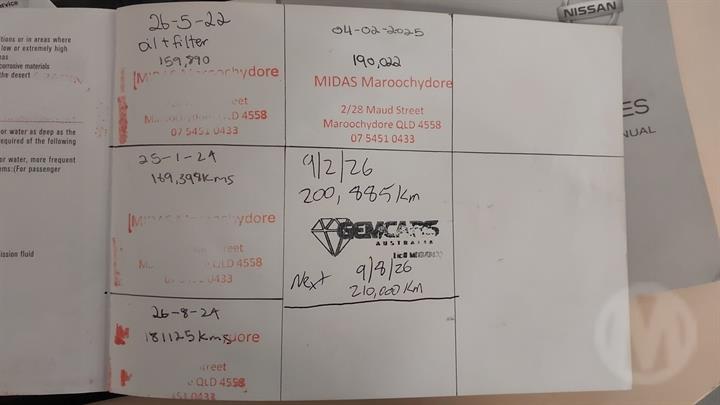 ervice
itions or in areas where
low or extremely high
eas
corrosive materials
the desert
or water as deep as the
equired of the following
or water, more frequent
ems:(For passenger
ission fluid
26-5-22
oil + filter
159,890
[MIDAS Maroochydore
Street
Maroochydore QLD 4558
07 5451 0433
25-1-24
169,398kms
[MIDAS Maroochydore
Street
QLD 4558
0433
26-8-24
181125kms
dore
treet
QLD 4558
0433
04-02-2025
190,022
MIDAS Maroochydore
2/28 Maud Street
Maroochydore QLD 4558
07 5451 0433
9/2/26
200,885km
GEMCARS
AUSTRALIA
Next 9/8/26
210,000km
NISSAN
ES
NUAL
M